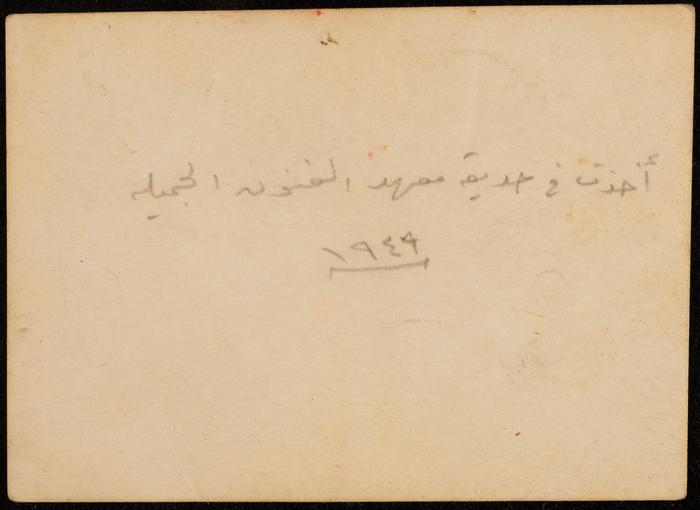 أخذت في حديقة معهد الفنون الجميله
١٩٤٩